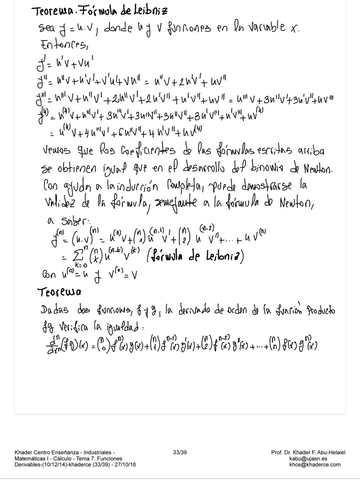 Teorema. Fórmula de Leibniz
Sea y = u.v, donde u y v funciones en la variable x.
Entonces,
y' = u'v + vu'
y'' = u''v + u'v' + v'u' + uv'' = u''v + 2u'v' + uv''
y''' = u'''v + u''v' + 2u''v' + 2u'v'' + u'v'' + uv''' = u'''v + 3u''v' + 3u'v'' + uv'''
= u⁽⁴⁾v + 4u'''v' + 6u''v'' + 4u'v''' + uv⁽⁴⁾
Vemos que los coeficientes de las fórmulas escritas arriba
se obtienen igual que en el desarrollo del binomio de Newton.
Con ayuda a la inducción completa, puede demostrarse la
validez de la fórmula, semejante a la fórmula de Newton,
a saber:
y⁽ⁿ⁾ = (u.v)⁽ⁿ⁾ = u⁽ⁿ⁾v + (n 1) u⁽ⁿ⁻¹⁾v' + (n 2) u⁽ⁿ⁻²⁾v'' + ... + u v⁽ⁿ⁾
= Σ k=0 n (n k) u⁽ⁿ⁻ᵏ⁾ v⁽ᵏ⁾ (fórmula de Leibniz)
con u⁽⁰⁾ = u y v⁽⁰⁾ = v
Teorema
Dadas dos funciones, f y g, la derivada de orden de la función producto
fg verifica la igualdad:
dⁿ/dxⁿ (fg)(x) = (n 0) fⁿ(x) g(x) + (n 1) fⁿ⁻¹(x) g'(x) + (n 2) fⁿ⁻²(x) g''(x) + ... + (n n) f(x) gⁿ(x)
Khader Centro Enseñanza - Industriales - 33/39 Prof. Dr. Khader F. Abu-Helaiel
Matemáticas I - Cálculo - Tema 7. Funciones kabu@ujaen.es
Derivables-(10/12/14)-khaderce (33/39) - 27/10/16 khce@khaderce.com